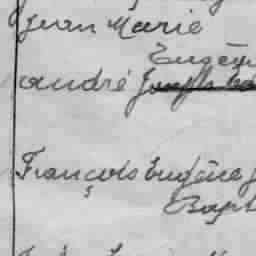 Jean Marie
Eugène
André Joseph
François Eugène J
Bapt